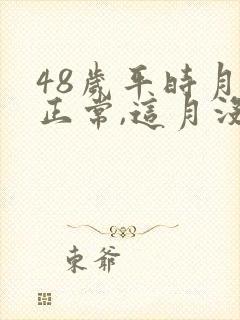 48歲平時月
正常,這月沒
東爺